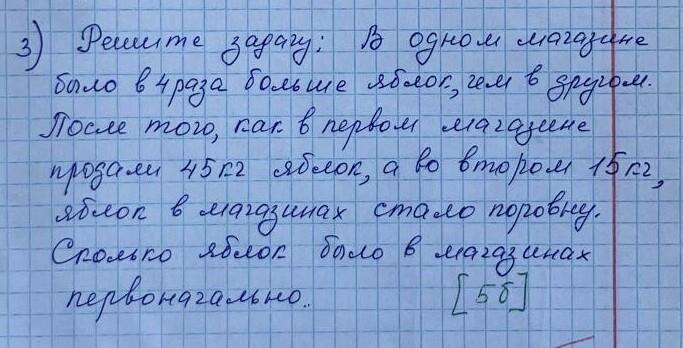 3) Решите задачу: В одном магазине
было в 4 раза больше яблок, чем в другом.
После того, как в первом магазине
продали 45кг яблок, а во втором 15кг,
яблок в магазинах стало поровну.
Сколько яблок было в магазинах
первоначально. [5б]